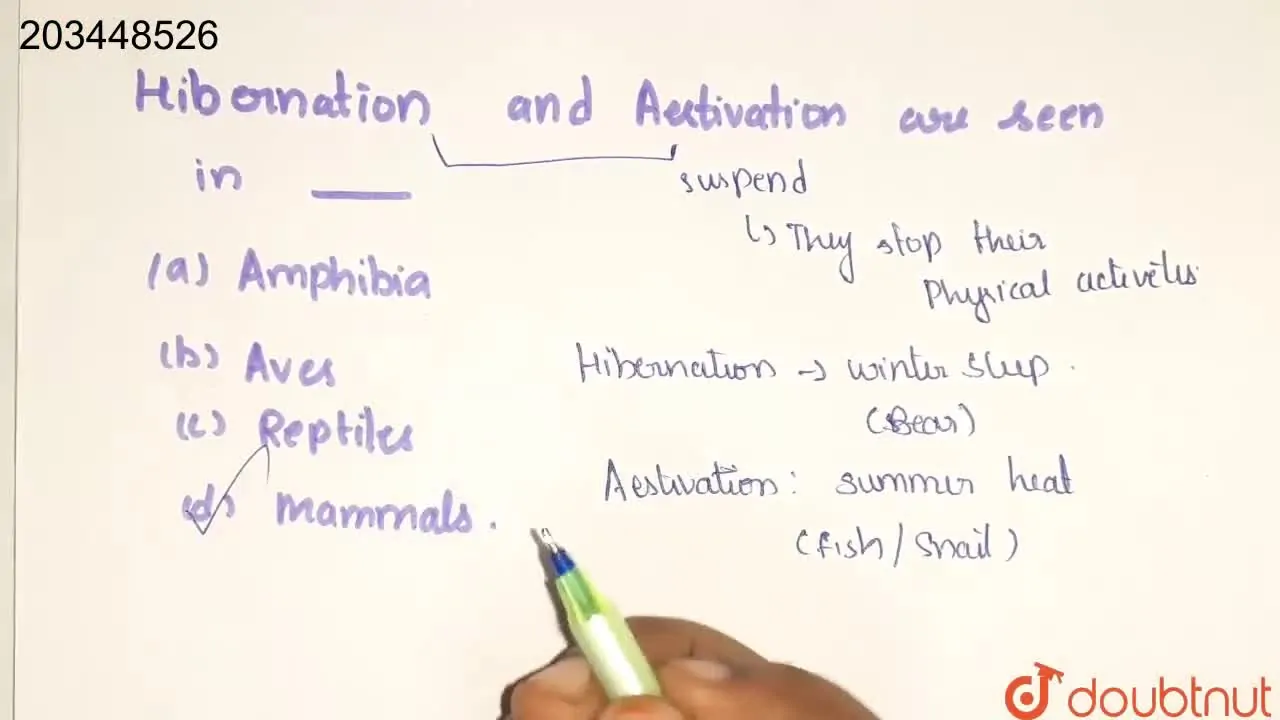 203448526
Hibernation and Aestivation are seen
in
suspend
↳ They stop their
Physical activities
(a) Amphibia
(b) Aves
(c) Reptiles
(d) mammals.
Hibernation → winter sleep.
(Bear)
Aestivation: summer heat
(fish/snail)
doubtnut